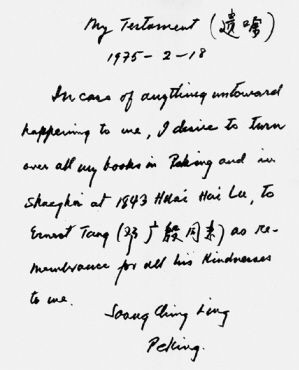 My Testament (遺囑)
1975-2-18
In case of anything untoward
happening to me, I desire to turn
over all my books in Peking and in
Shanghai at 1843 Huai Hai Lu, to
Ernest Tang (邓广殷同志) as re-
membrance for all his kindnesses
to me.
Soong Ching Ling
Peking.